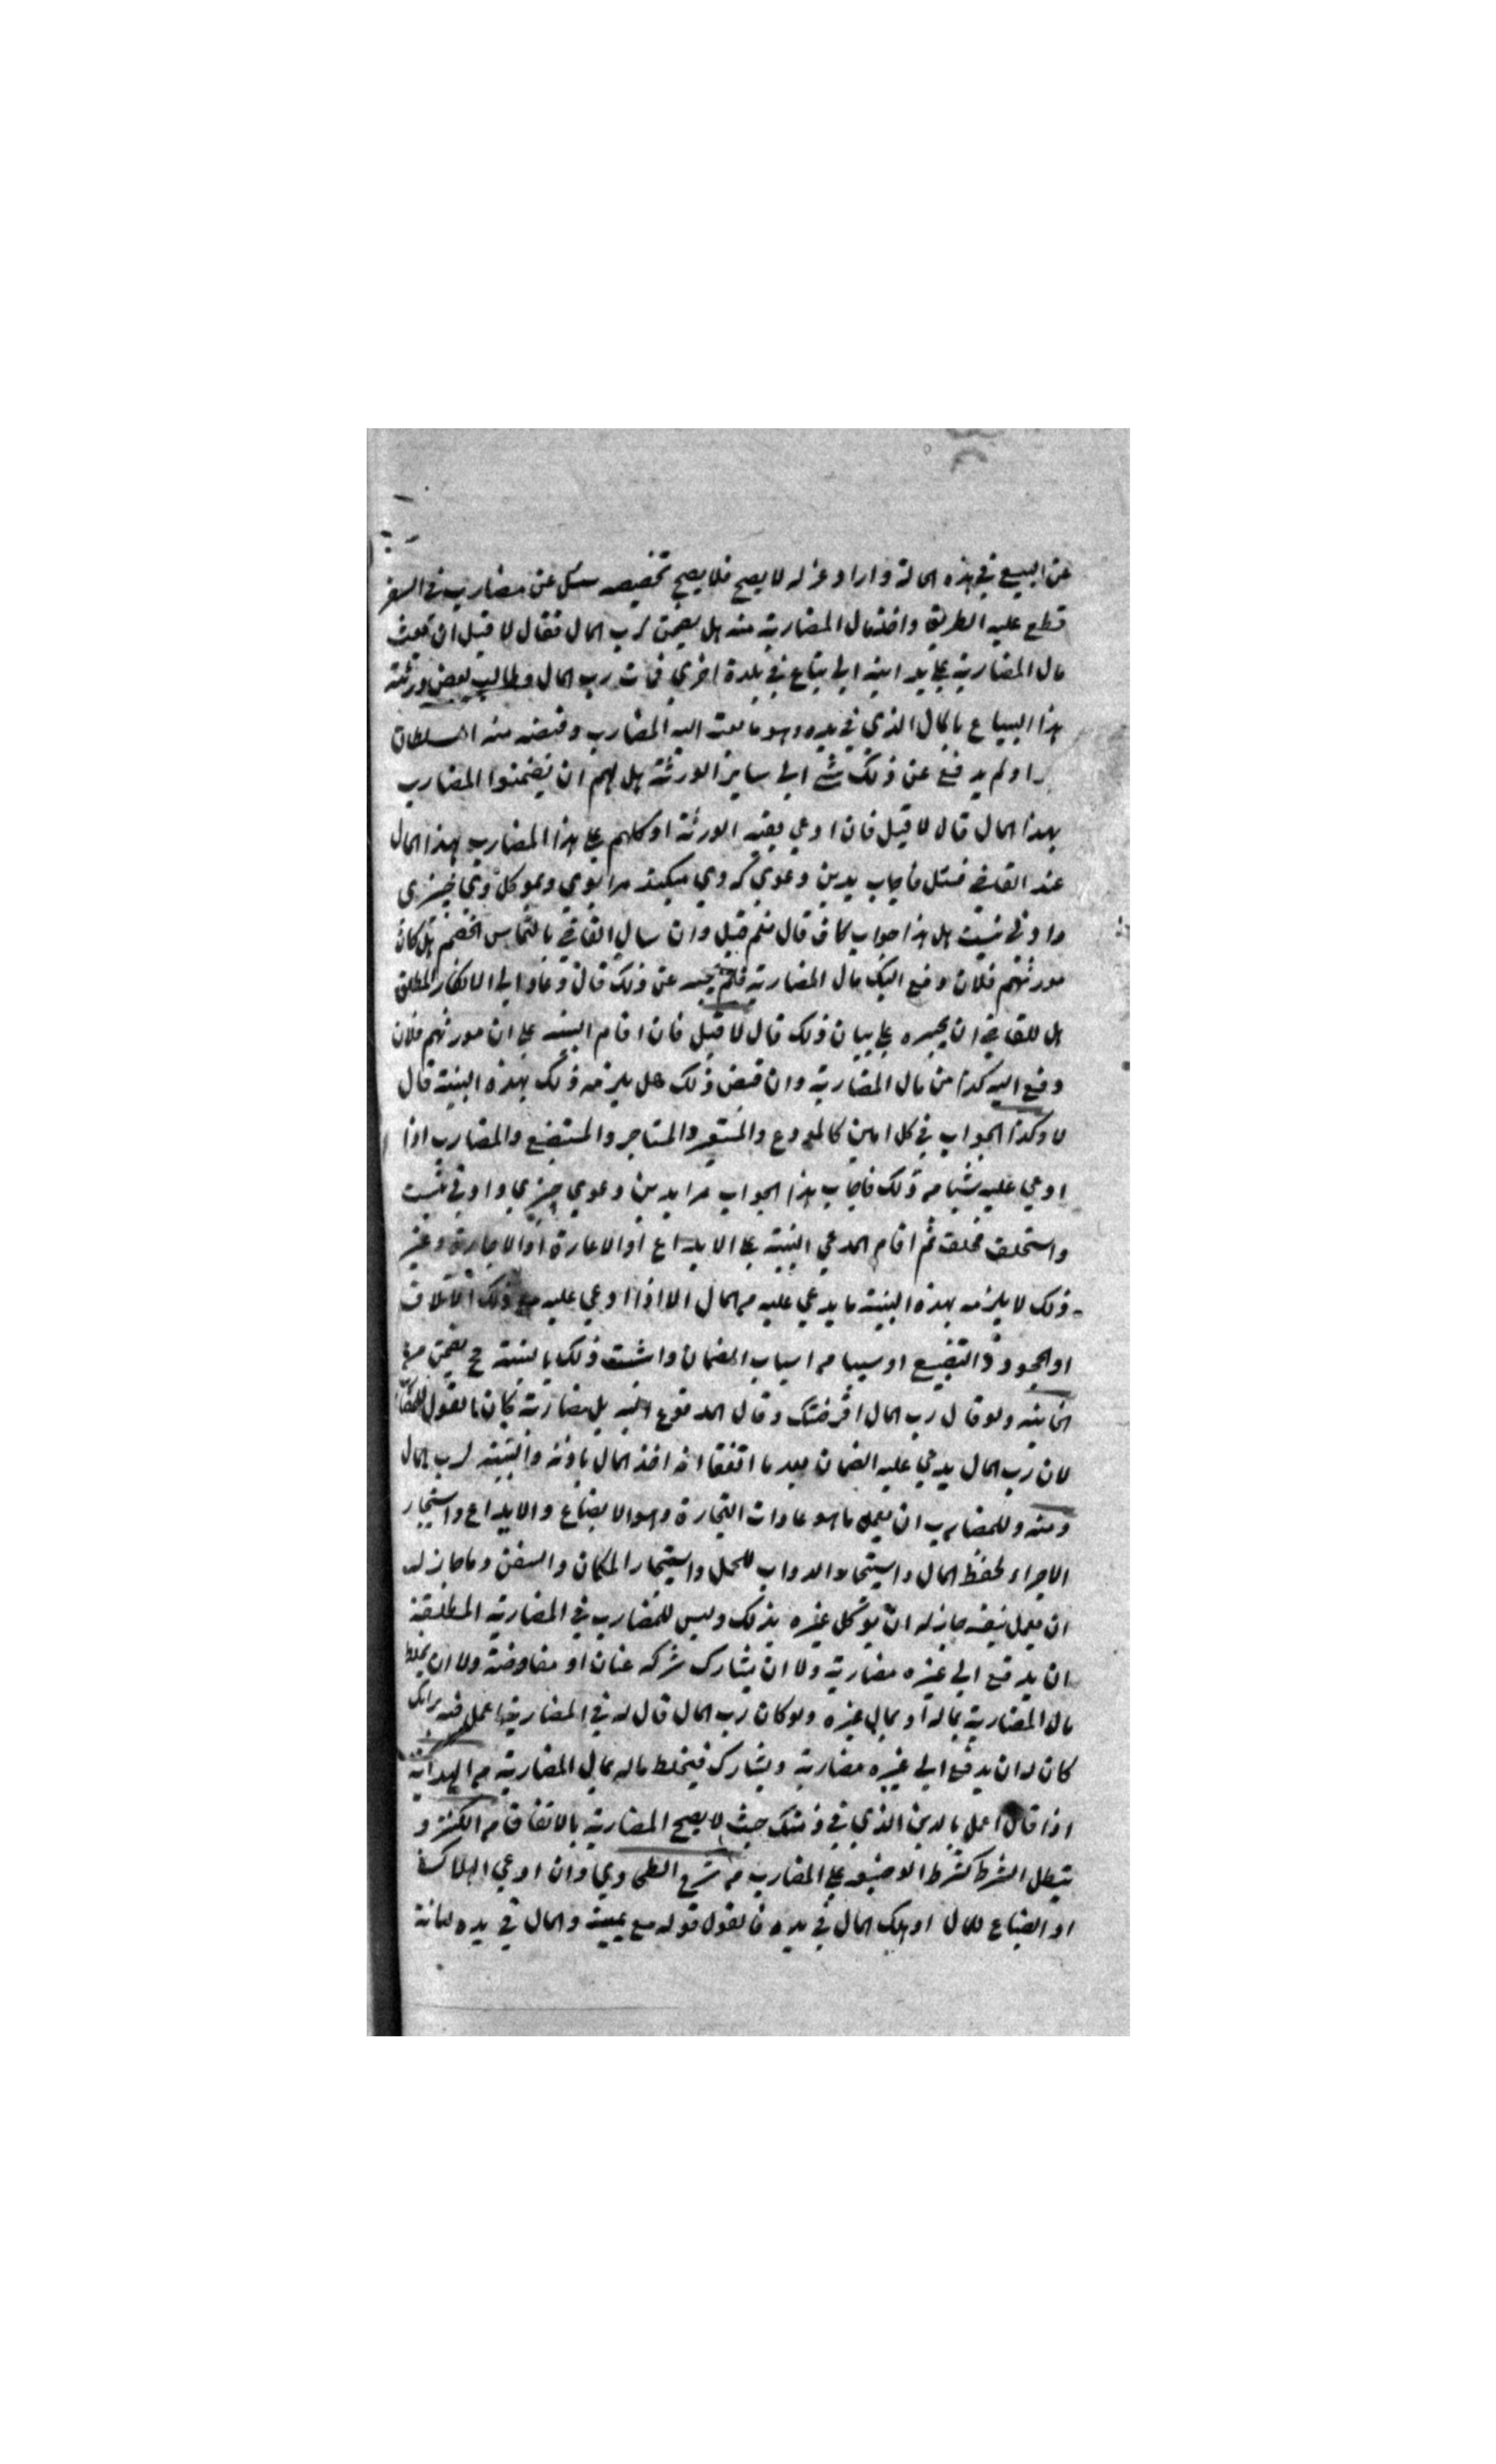 عن البيع في هذه الحالة واراد عزله لا يصح فلا يصح تخصيصه سئل عن مضارب في السفر
قطع عليه الطريق واخذ مال المضاربة منه هل يضمن لرب المال فقال لا قيل ان بعث
مال المضاربة على يد ابنه الى بياع في بلدة اخرى فمات رب المال وطالب بعض ورثته
هذا البياع بالمال الذي في يده وهو ما بعث اليه المضارب وقبضه منه السلطان
ولم يدفع عن ذلك شئ الى ساير الورثة هل لهم ان يضمنوا المضارب
بهذا المال قال لا قيل فان ادعى بقية الورثة او كلهم على هذا المضارب بهذا المال
عند القاضي فسئل فاجاب بدين دعوى كه وي ميكند مرا بوي وبموكل وي چيزى
دادنى نيست هل هذا جواب كاف قال نعم قيل وان سال القاضي بالتماس الخصم هل كان
مورثهم فلان دفع اليك مال المضاربة فلم يجب عن ذلك قال وعاد الى الانكار المطلق
هل للقاضي ان يجبره على بيان ذلك قال لا قيل فان اقام البينة على ان مورثهم فلان
دفع اليه كذا من مال المضاربة وان قبض ذلك هل يلزمه ذلك بهذه البينة قال
لا وكذا الجواب في كل امين كالمودع والمستعير والمستاجر والمستبضع والمضارب اذا
ادعي عليه شيا من ذلك فاجاب بهذا الجواب مرا بدين دعوى چيزي دادنى نيست
واستحلف فحلف ثم اقام المدعي البينة على الايداع او الاعارة او الاجارة وغير
ذلك لا يلزمه بهذه البينة ما يدعي عليه من المال الا اذا ادعى عليه مع ذلك الاتلاف
او الجحود والتضييع او سببا من اسباب الضمان واثبت ذلك بالبينة ح يضمن من
الخانية ولو قال رب المال اقرضتك وقال المدفوع اليه بل مضاربة كان القول للمضارب
لان رب المال يدعي عليه الضمان بعد ما اتفقا انه اخذ المال باذنه والبينة لرب المال
ومنه وللمضارب ان يعمل ما هو عادات التجارة وهو الابضاع والايداع واستيجار
الاجراء لحفظ المال واستيجار الدواب للحمل واستيجار المكان والسفن وما جاز له
ان يعمل بنفسه جاز له ان يوكل غيره بذلك وليس للمضارب في المضاربة المطلقة
ان يدفع الى غيره مضاربة ولا ان يشارك شركة عنان او مفاوضة ولا ان يخلط
مال المضاربة بماله او بمال غيره ولو كان رب المال قال له في المضاربة اعمل فيه برايك
كان له ان يدفع الى غيره مضاربة ويشارك فيخلط ماله بمال المضاربة من الهداية
اذا قال اعمل بالدين الذي في ذمتك حيث لا يصح المضاربة بالاتفاق من الكنز و
يبطل الشرط كشرط الوضيعة على المضارب من شرح الطحاوي وان ادعى الهلاك
او الضياع للمال او هلك المال في يده فالقول قوله مع يمينه والمال في يده امانة